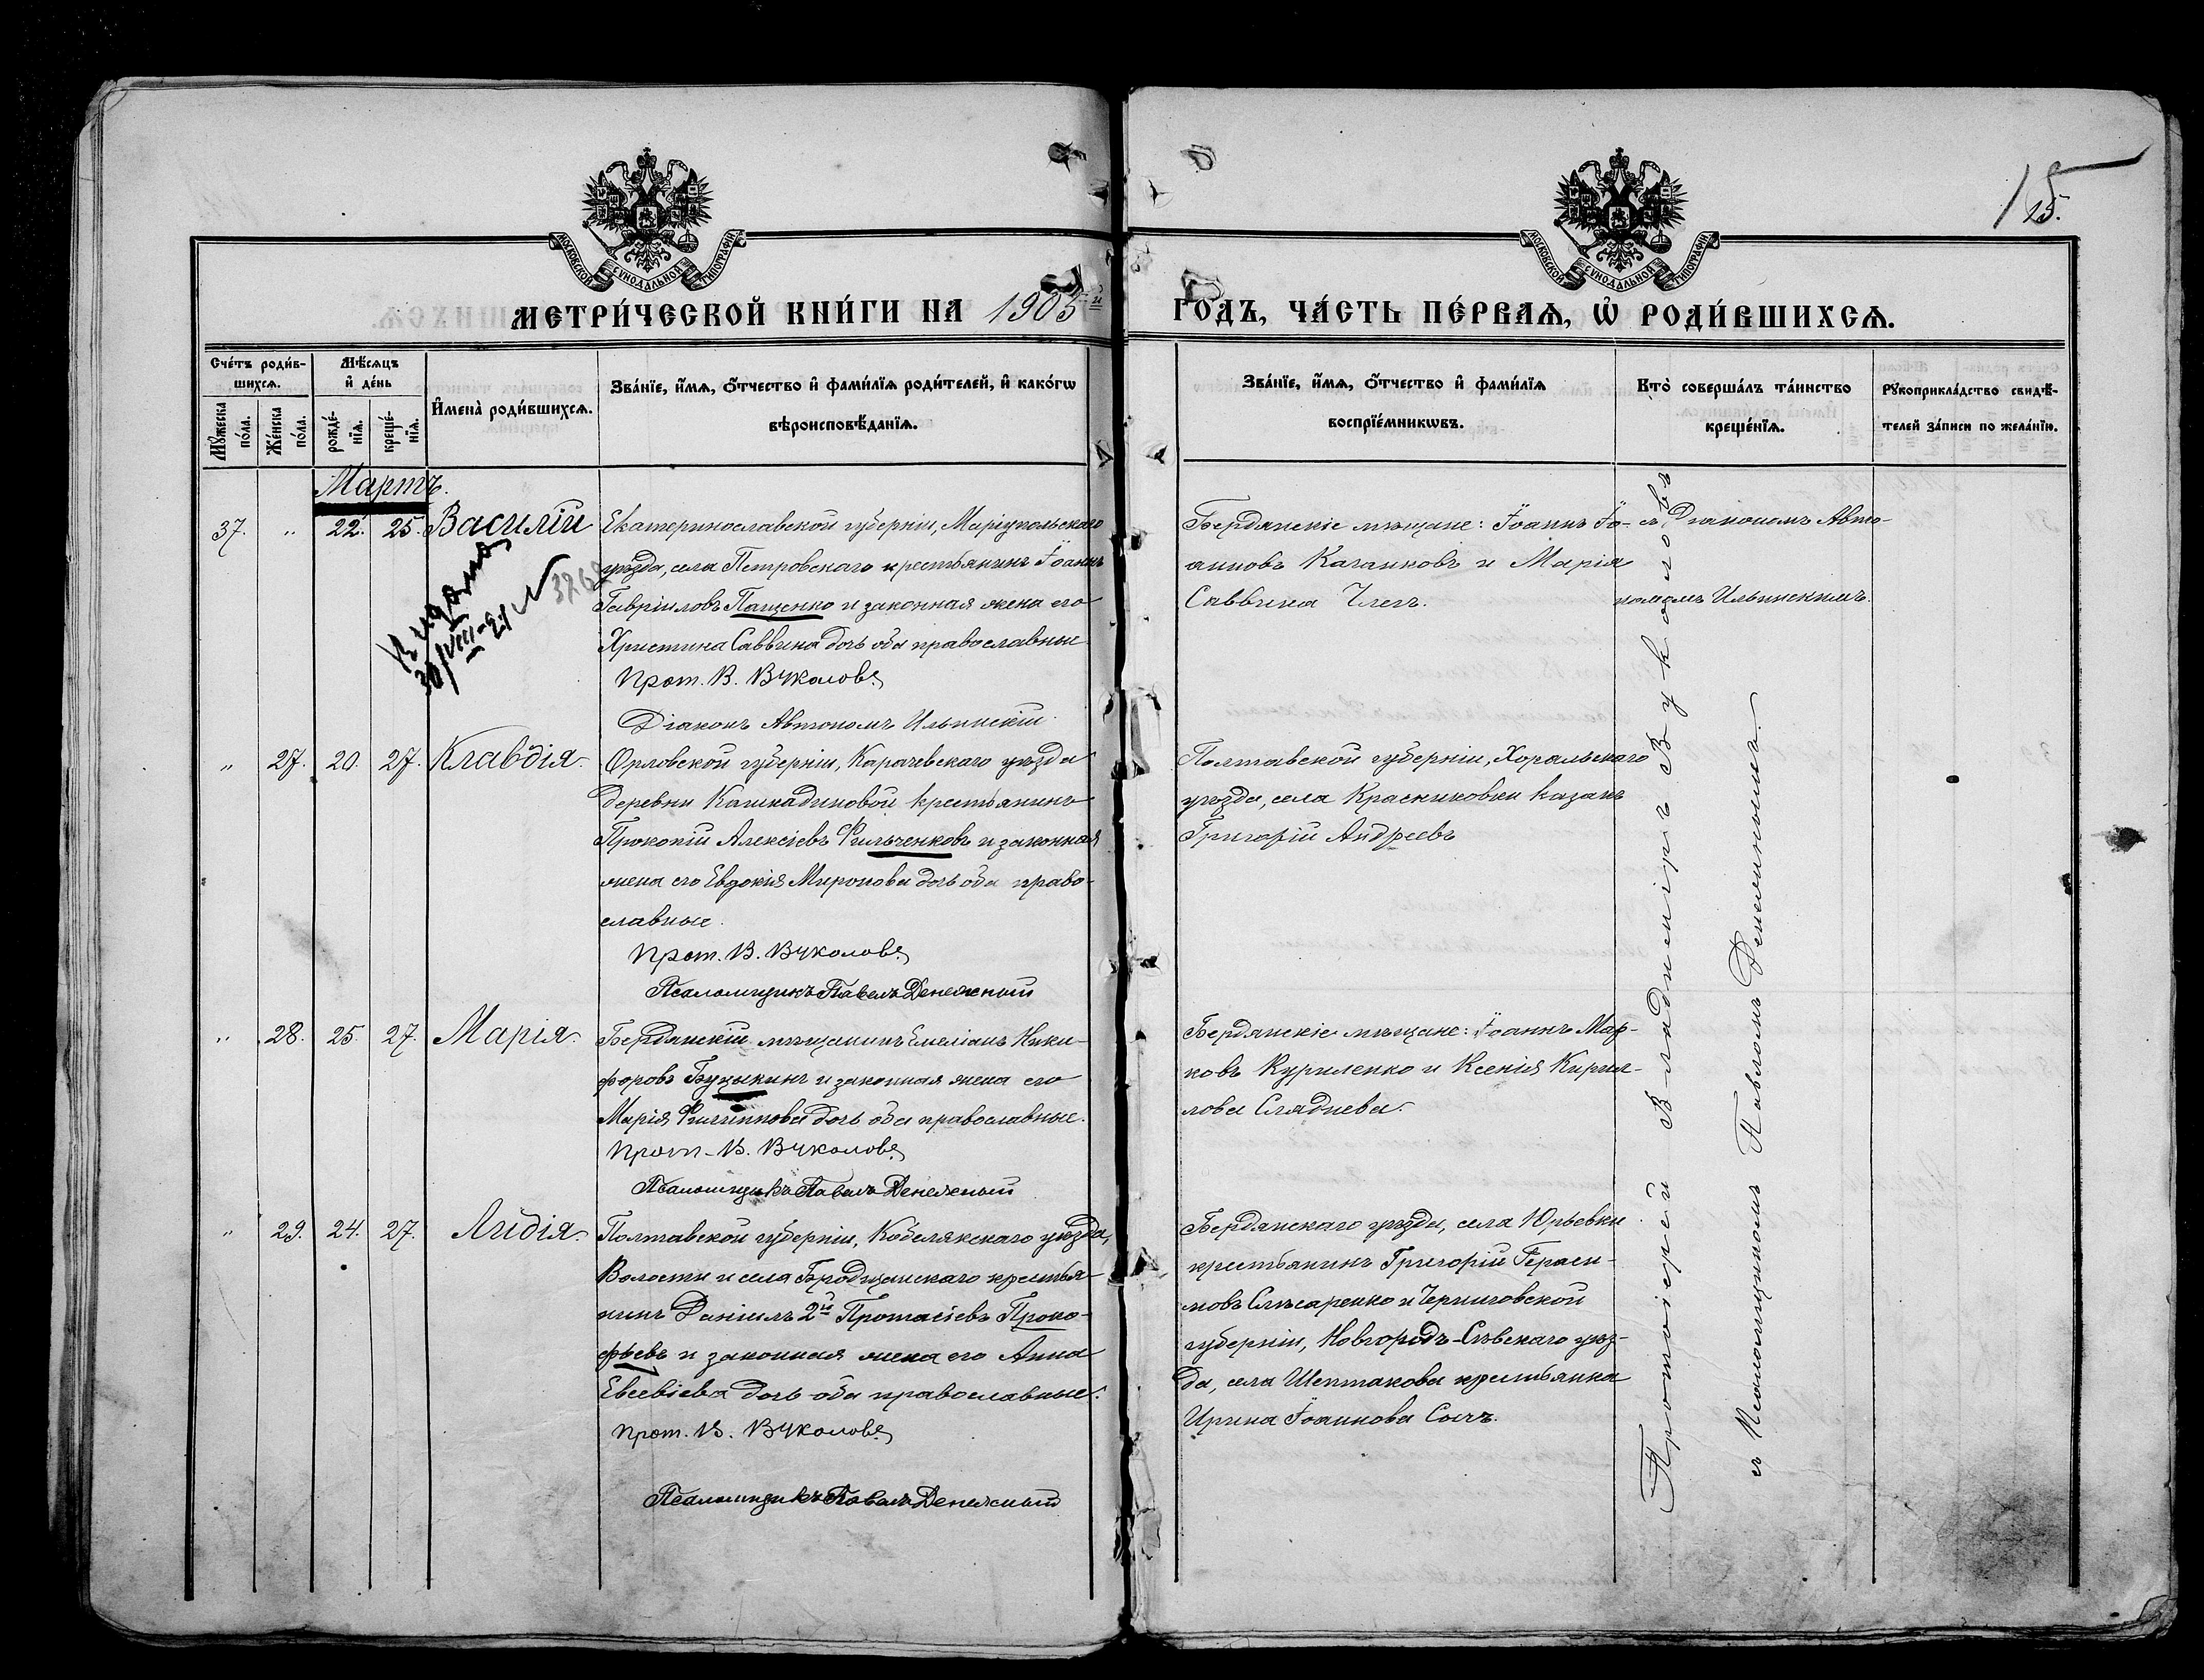 15.
МОСКОВСКОЙ СѴНОДАЛЬНОЙ ТИПОГРАФІИ
МОСКОВСКОЙ СѴНОДАЛЬНОЙ ТИПОГРАФІИ
МЕТРИ́ЧЕСКОЙ КНИ́ГИ НА 1905й ГОДЪ, ЧА́СТЬ ПЕ́РВАѦ, Ѽ РОДИ́ВШИХСѦ.
Сче́тъ роди́в-
шихсѧ.
Мꙋ́жеска по́ла.
Же́нска по́ла.
Мѣ́сѧцъ
и҆ де́нь
рожде́-
нїѧ.
креще́-
нїѧ.
И҆мена̀ роди́вшихсѧ.
Зва́нїе, и҆́мѧ, ѻ҆́тчество и҆ фами́лїѧ роди́телей, и҆ како́гѡ
вѣроисповѣ́данїѧ.
Зва́нїе, и҆́мѧ, ѻ҆́тчество и҆ фами́лїѧ
воспрїе́мникѡвъ.
Кто̀ соверша́лъ та́инство
креще́нїѧ.
Рꙋкоприкла́дство свидѣ́-
телей за́писи по жела́нїю.
Мартъ.
37. " 22. 25. Василій
Екатеринославской губерніи, Маріупольскаго
уѣзда, села Петровскаго крестьянинъ Іоаннъ
Гавріиловъ Пащенко и законная жена его
Христина Саввина дочь оба православные
Прот. В. Вуколовъ
Діаконъ Автономъ Ильинскій.
Бердянскіе мѣщане: Іоаннъ Іо-
анновъ Качанковъ и Марія
Саввина Члег.
съ Діакономъ Авто-
номомъ Ильинскимъ.
Выдана
30/VIII-21 N 3262
" 27. 20. 27. Клавдія.
Орловской губерніи, Карачевскаго уѣзда
деревни Кашкадиновой крестьянинъ
Прокопій Алексіевъ Фильченковъ и законная
жена его Евдокія Миронова дочь оба право-
славные.
Прот. В. Вуколовъ
Псаломщикъ Павелъ Денежный
Полтавской губерніи, Хорольскаго
уѣзда, села Красниковки казакъ
Григорій Андреевъ
" 28. 25. 27. Марія.
Бердянскій мѣщанинъ Емеліанъ Ники-
форовъ Буцыкинъ и законная жена его
Марія Филиппова дочь оба православные.
Прот. В. Вуколовъ
Псаломщикъ Павелъ Денежный
Бердянскіе мѣщане: Іоаннъ Мар-
ковъ Куриленко и Ксенія Кирил-
лова Сляднева.
" 29. 24. 27. Лидія.
Полтавской губерніи, Кобелякскаго уѣзда,
Волости и села Бродщанскаго крестья-
нинъ Даніилъ 2й Протасіевъ Проко-
фьевъ и законная жена его Анна
Евсевіева дочь оба православные.
Прот. В. Вуколовъ
Псаломщикъ Павелъ Денежный
Бердянскаго уѣзда, села Юрьевки
крестьянинъ Григорій Гераси-
мовъ Слѣсаренко и Черниговской
губерніи, Новгородъ-Сѣвскаго уѣз-
да, села Шептакова крестьянка
Ирина Іоаннова Сычъ.
Протоіерей Владиміръ Вуколовъ
съ Псаломщикомъ Павломъ Денежнымъ.